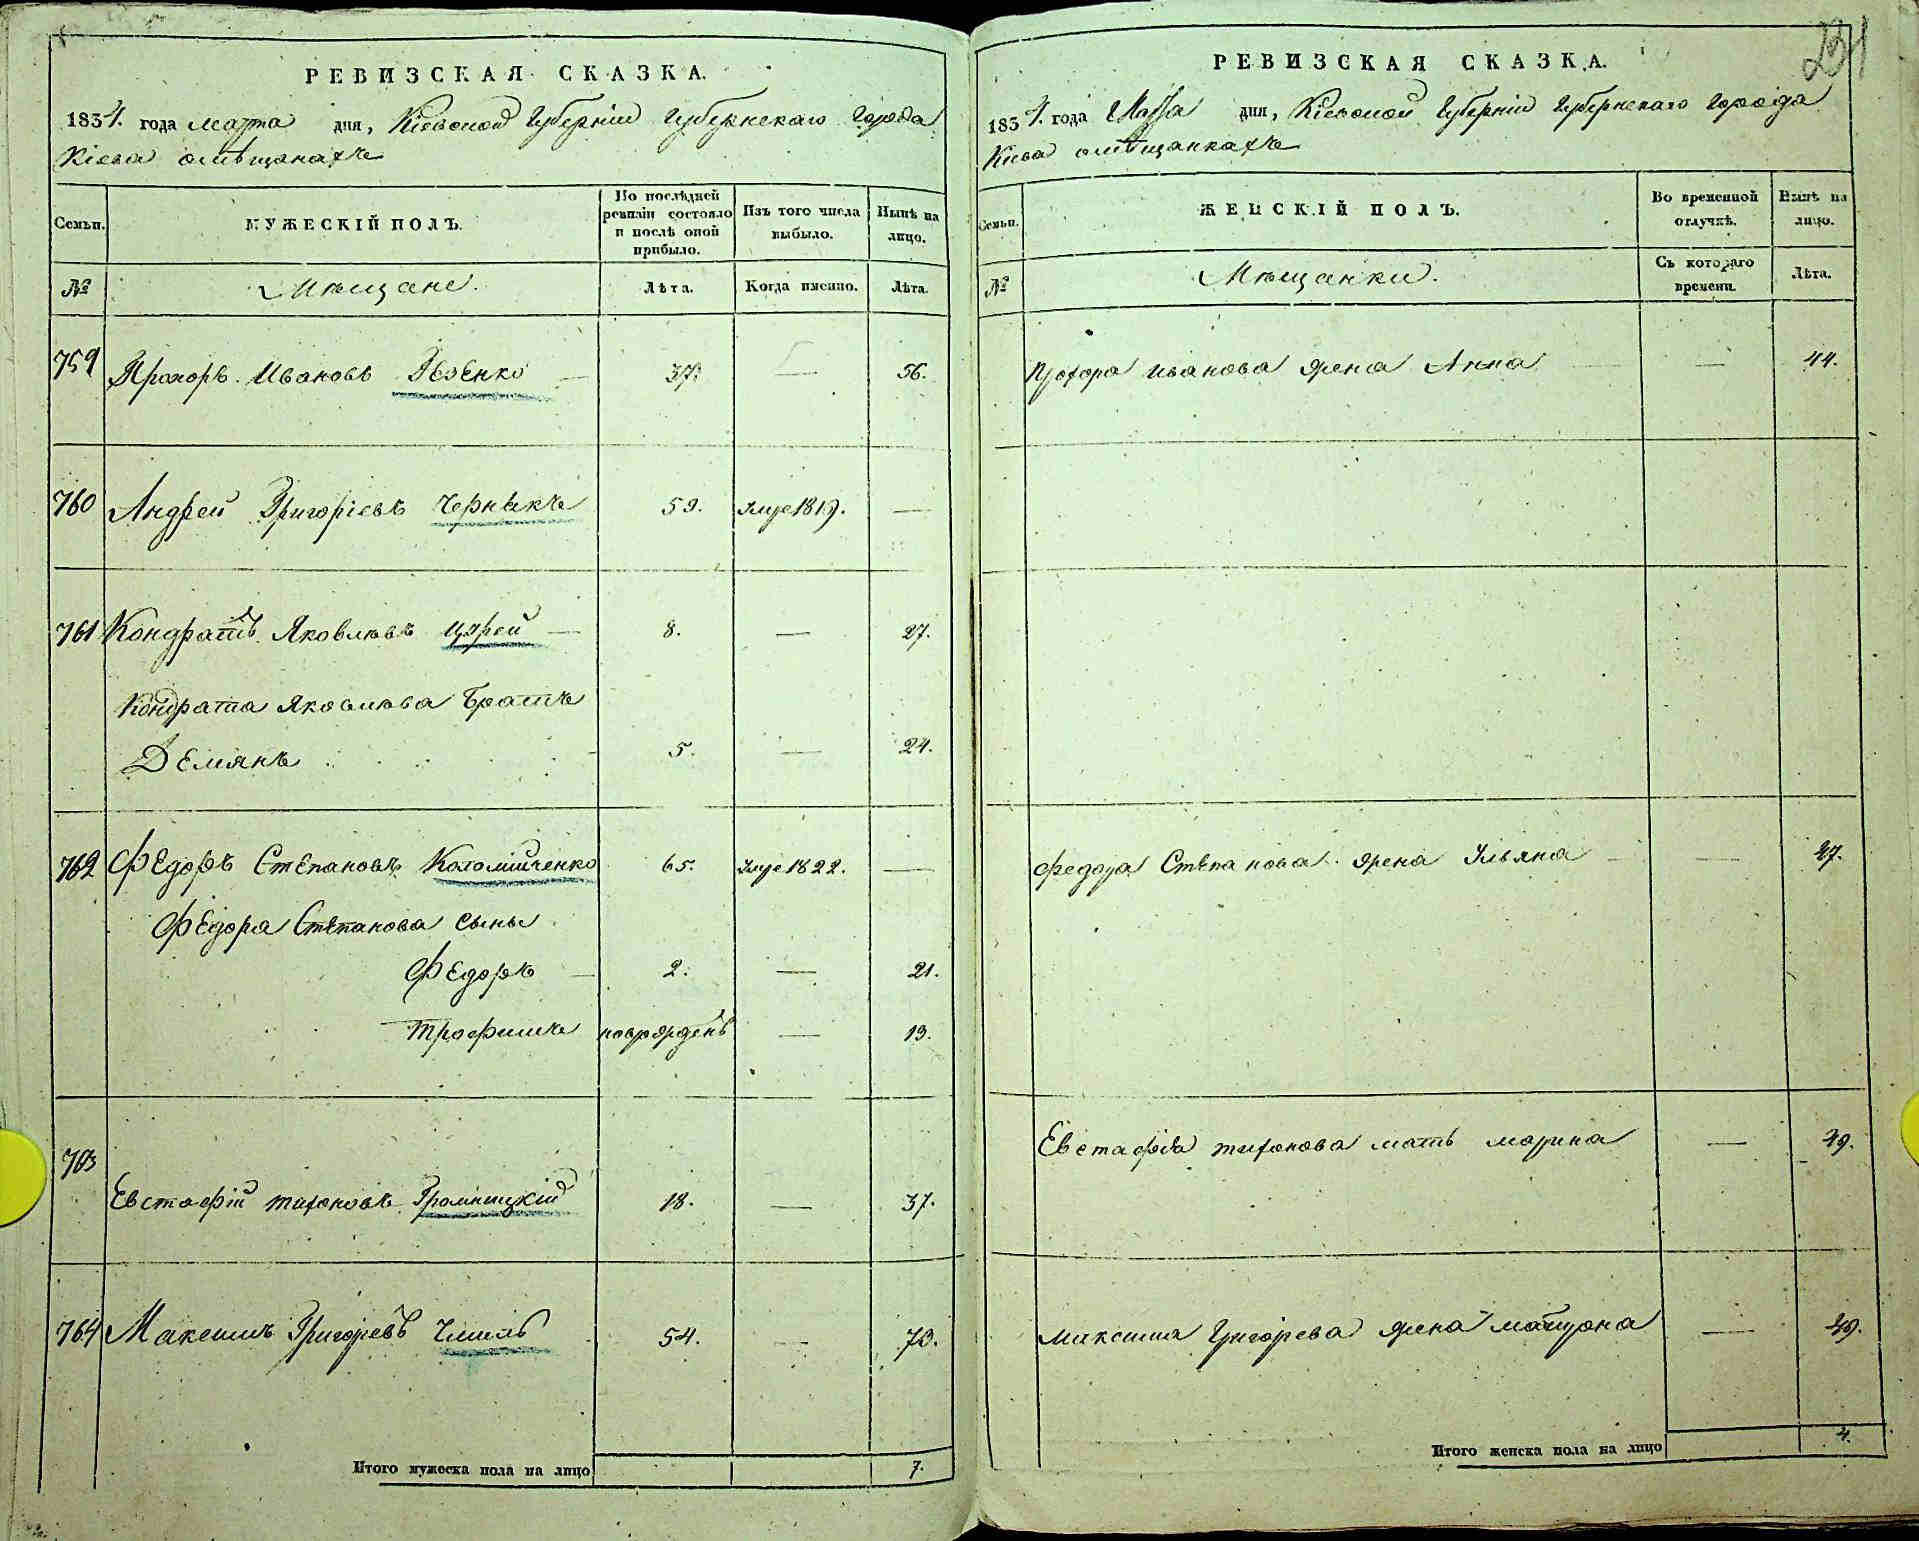 РЕВИЗСКАЯ СКАЗКА.
1834. года марта дня, Кіевской Губерніи Губернскаго Города
Кіева омѣщанахъ
Семьи.
МУЖЕСКІЙ ПОЛЪ.
По послѣдней ревизіи состояло и послѣ оной прибыло.
Изъ того числа выбыло.
Нынѣ на лицо.
№
Мѣщане.
Лѣта.
Когда именно.
Лѣта.
759 Прохоръ Ивановъ 37. — 56.
760 Андрей Григоріевъ Чернякъ 59. умре 1819. —
761 Кондратъ Яковлевъ Цырей — 8. — 27.
Кондрата Яковлева Братъ
Демянъ 5. — 24.
762 Федоръ Степановъ Коломійченко 65. умре 1822. —
Федора Степанова сыны
Федоръ — 2. — 21.
Трофимъ новорожденъ — 13.
763
Евстафій Тихоновъ 18. — 37.
764 Максимъ Григорьевъ Чмиль 54. — 73.
Итого мужеска пола на лицо 7.
231
РЕВИЗСКАЯ СКАЗКА.
1834. года Марта дня, Кіевской Губерніи Губернскаго Города
Кіева омѣщанкахъ
Семьи.
ЖЕНСКІЙ ПОЛЪ.
Во временной отлучкѣ.
Нынѣ на лицо.
№
Мѣщанки.
Съ котораго времени.
Лѣта.
Прохора Иванова жена Анна — 44.
Федора Степанова жена Ульяна — 47.
Евстафія Тихонова мать Марина — 49.
Максима Григорьева жена Матрона — 49.
Итого женска пола на лицо 4.